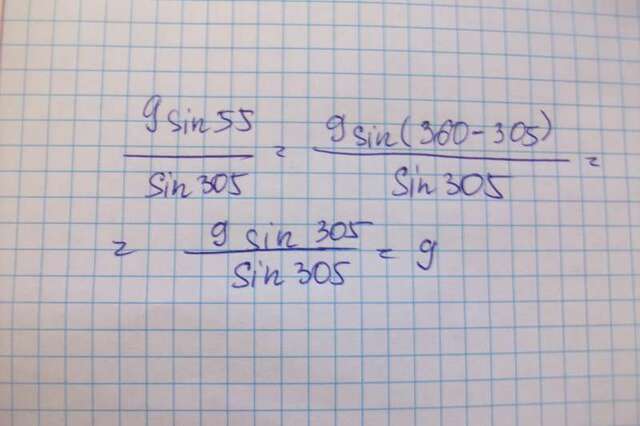 9 sin 55 / sin 305 = 9 sin (360 - 305) / sin 305 =
= 9 sin 305 / sin 305 = 9